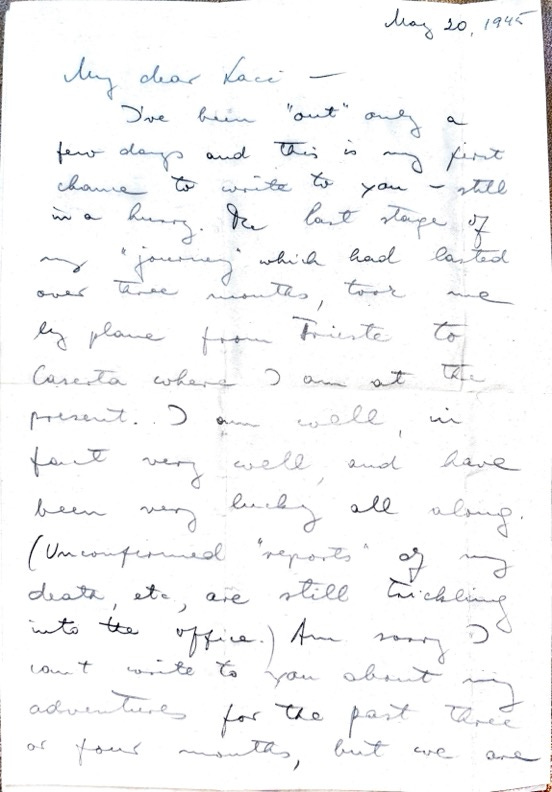 May 20, 1945
My dear Kaci —
I've been "out" only a
few days and this is my first
chance to write to you – still
in a hurry. The last stage of
my "journey" which had lasted
over three months, took me
by plane from Trieste to
Caserta where I am at the
present. I am well, in
fact very well, and have
been very lucky all along.
(Unconfirmed "reports" of my
death, etc, are still trickling
into the office.) Am sorry I
can't write to you about my
adventures for the past three
or four months, but we are